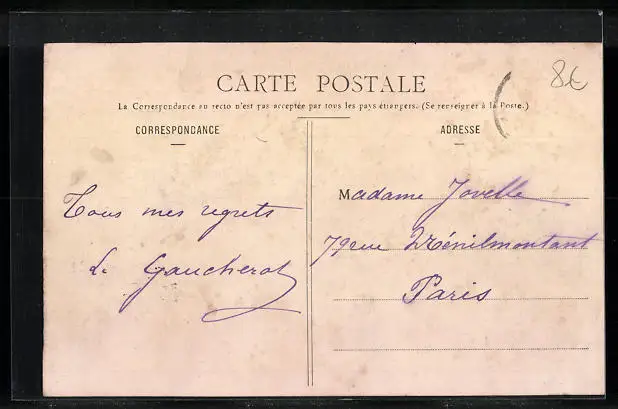 8€
CARTE POSTALE
La Correspondance au recto n'est pas acceptée par tous les pays étrangers. (Se renseigner à la Poste.)
CORRESPONDANCE
Tous mes regrets
L. Gaucherot
ADRESSE
Madame Jovelle
79 rue Ménilmontant
Paris